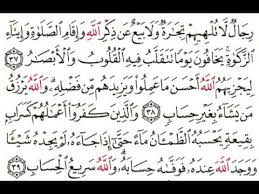 رِجَالٌ لَّا تُلْهِيهِمْ تِجَٰرَةٌ وَلَا بَيْعٌ عَن ذِكْرِ ٱللَّهِ وَإِقَامِ ٱلصَّلَوٰةِ وَإِيتَآءِ
ٱلزَّكَوٰةِ يَخَافُونَ يَوْمًا تَتَقَلَّبُ فِيهِ ٱلْقُلُوبُ وَٱلْأَبْصَٰرُ ٣٧
لِيَجْزِيَهُمُ ٱللَّهُ أَحْسَنَ مَا عَمِلُوا۟ وَيَزِيدَهُم مِّن فَضْلِهِۦ وَٱللَّهُ يَرْزُقُ
مَن يَشَآءُ بِغَيْرِ حِسَابٍ ٣٨ وَٱلَّذِينَ كَفَرُوٓا۟ أَعْمَٰلُهُمْ كَسَرَابٍۭ
بِقِيعَةٍ يَحْسَبُهُ ٱلظَّمْـَٔانُ مَآءً حَتَّىٰٓ إِذَا جَآءَهُۥ لَمْ يَجِدْهُ شَيْـًٔا
وَوَجَدَ ٱللَّهَ عِندَهُۥ فَوَفَّىٰهُ حِسَابَهُۥ وَٱللَّهُ سَرِيعُ ٱلْحِسَابِ ٣٩